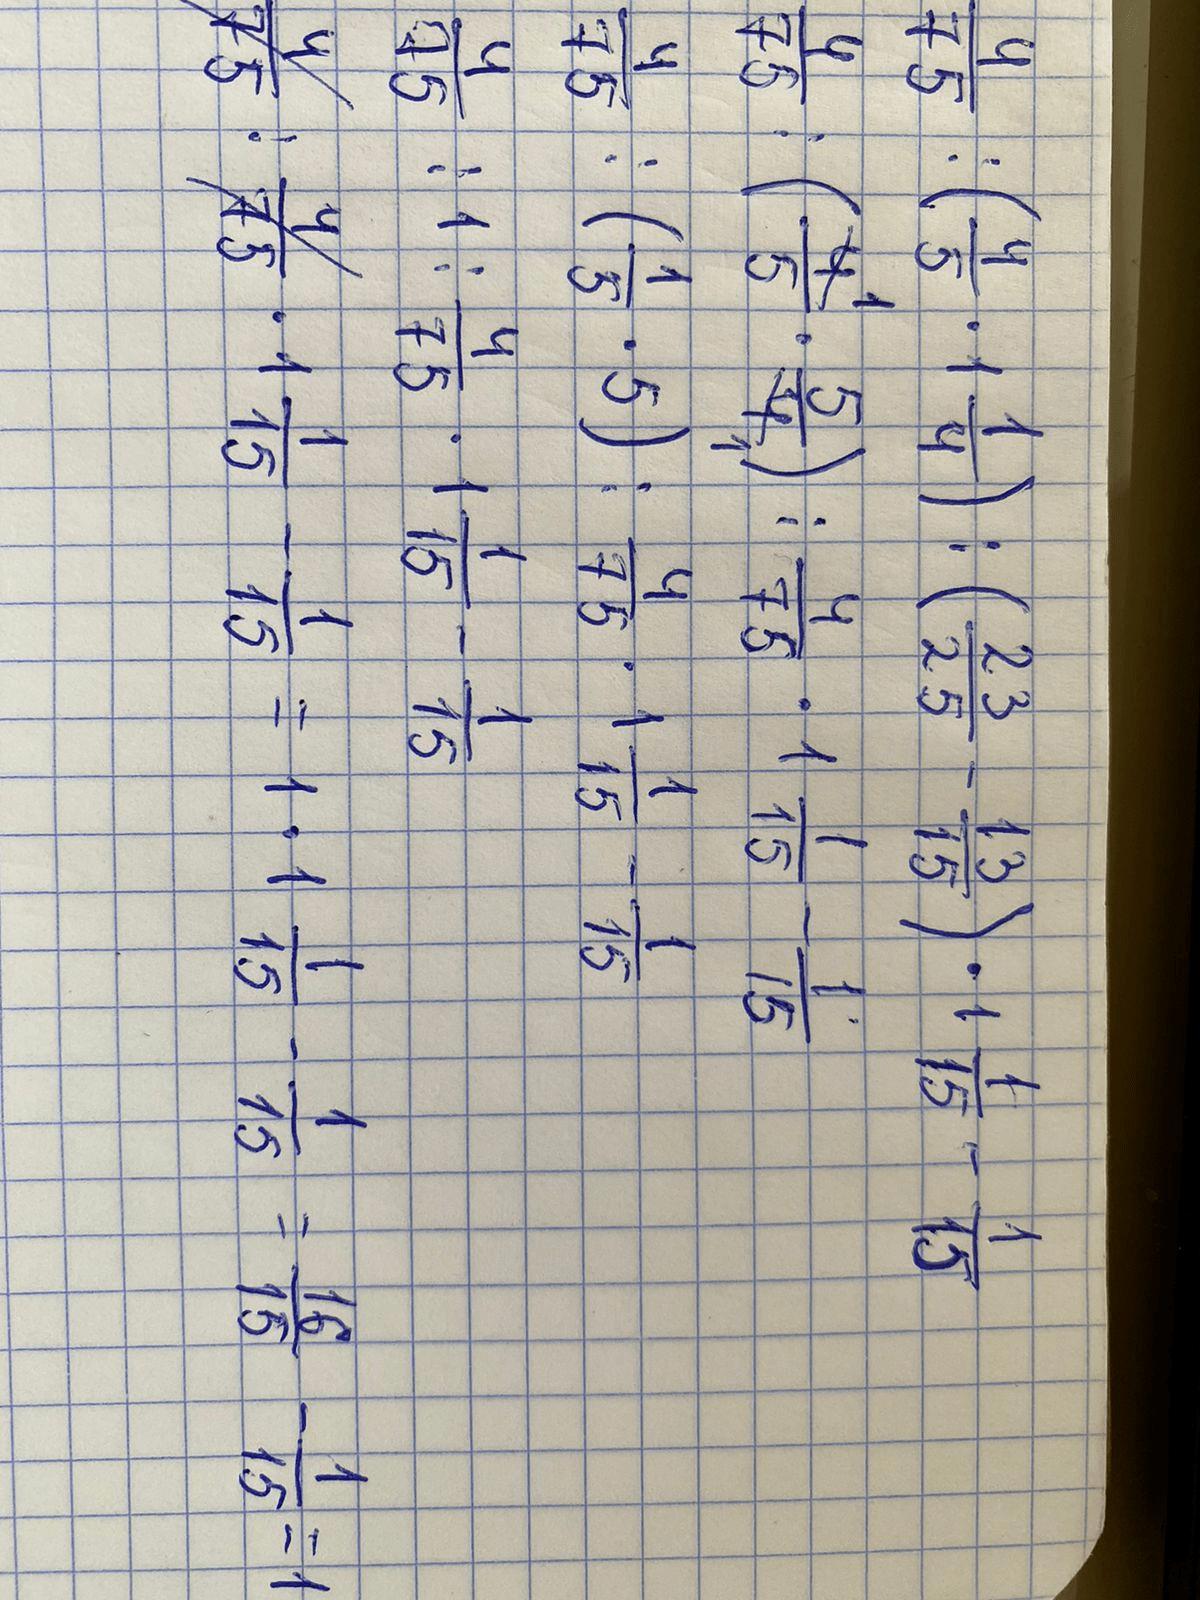 4/75 : (4/5 · 1 1/4) : (23/25 - 13/15) · 1 1/15 - 1/15
4/75 : (4/5 1 · 5/4 1) : 4/75 · 1 1/15 - 1/15
4/75 : (1/5 · 5) : 4/75 · 1 1/15 - 1/15
4/75 : 1 : 4/75 · 1 1/15 - 1/15
4/75 : 4/75 · 1 1/15 - 1/15 = 1 · 1 1/15 - 1/15 = 16/15 - 1/15 = 1